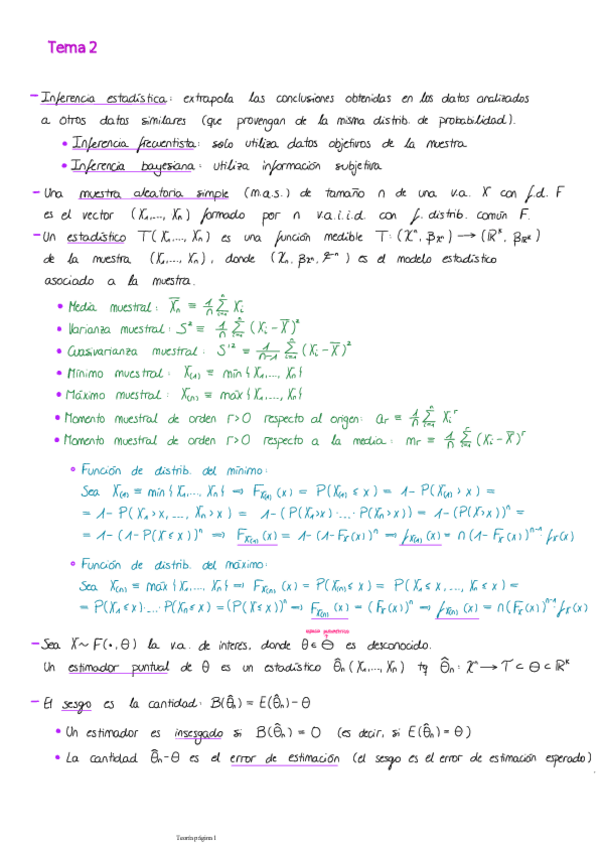 Tema 2
– Inferencia estadística: extrapola las conclusiones obtenidas en los datos analizados
a otros datos similares (que provengan de la misma distrib. de probabilidad).
• Inferencia frecuentista: solo utiliza datos objetivos de la muestra
• Inferencia bayesiana: utiliza información subjetiva
– Una muestra aleatoria simple (m.a.s.) de tamaño n de una v.a. X con f.d. F
es el vector (X₁,..., Xₙ) formado por n v.a.i.i.d. con f. distrib. común F.
– Un estadístico T(X₁,..., Xₙ) es una función medible T: (χⁿ, β_χⁿ) → (ℝᵏ, β_ℝᵏ)
de la muestra (X₁,..., Xₙ), donde (χⁿ, β_χⁿ, ) es el modelo estadístico
asociado a la muestra.
• Media muestral: X̄ₙ ≡ 1/n Σᵢ₌₁ⁿ Xᵢ
• Varianza muestral: S² ≡ 1/n Σᵢ₌₁ⁿ (Xᵢ - X̄)²
• Cuasivarianza muestral: S'² ≡ 1/(n-1) Σᵢ₌₁ⁿ (Xᵢ - X̄)²
• Mínimo muestral: X₍₁₎ ≡ mín {X₁,..., Xₙ}
• Máximo muestral: X₍ₙ₎ ≡ máx {X₁,..., Xₙ}
• Momento muestral de orden r>0 respecto al origen: aᵣ ≡ 1/n Σᵢ₌₁ⁿ Xᵢʳ
• Momento muestral de orden r>0 respecto a la media: mᵣ ≡ 1/n Σᵢ₌₁ⁿ (Xᵢ - X̄)ʳ
◦ Función de distrib. del mínimo:
Sea X₍₁₎ ≡ mín {X₁,..., Xₙ} ⇒ F_X₍₁₎(x) = P(X₍₁₎ ≤ x) = 1 - P(X₍₁₎ > x) =
= 1 - P(X₁ > x, ..., Xₙ > x) = 1 - (P(X₁>x) · ... · P(Xₙ>x)) = 1 - (P(X>x))ⁿ =
= 1 - (1 - P(X ≤ x))ⁿ ⇒ F_X₍₁₎(x) = 1 - (1 - F_X(x))ⁿ ⇒ f_X₍₁₎(x) = n(1 - F_X(x))ⁿ⁻¹ · f_X(x)
◦ Función de distrib. del máximo:
Sea X₍ₙ₎ ≡ máx {X₁,..., Xₙ} ⇒ F_X₍ₙ₎(x) = P(X₍ₙ₎ ≤ x) = P(X₁ ≤ x, ..., Xₙ ≤ x) =
= P(X₁ ≤ x) · ... · P(Xₙ ≤ x) = (P(X ≤ x))ⁿ ⇒ F_X₍ₙ₎(x) = (F_X(x))ⁿ ⇒ f_X₍ₙ₎(x) = n(F_X(x))ⁿ⁻¹ · f_X(x)
espacio paramétrico
– Sea X ~ F(·, θ) la v.a. de interés, donde θ ∈ Θ es desconocido.
Un estimador puntual de θ es un estadístico θ̂ₙ(X₁,..., Xₙ) tq θ̂ₙ: χⁿ → T ⊂ Θ ⊂ ℝᵏ
– El sesgo es la cantidad: B(θ̂ₙ) = E(θ̂ₙ) - θ
• Un estimador es insesgado si B(θ̂ₙ) = 0 (es decir, si E(θ̂ₙ) = θ)
• La cantidad θ̂ₙ - θ es el error de estimación (el sesgo es el error de estimación esperado)
Teoría página 1